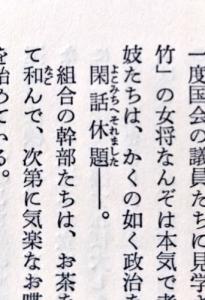 一度国会の議員たちに見学
竹」の女将なんぞは本気で
妓たちは、かくの如く政治を
閑話休題――。
組合の幹部たちは、お茶を
て和んで、次第に気楽なお喋
を始めている。